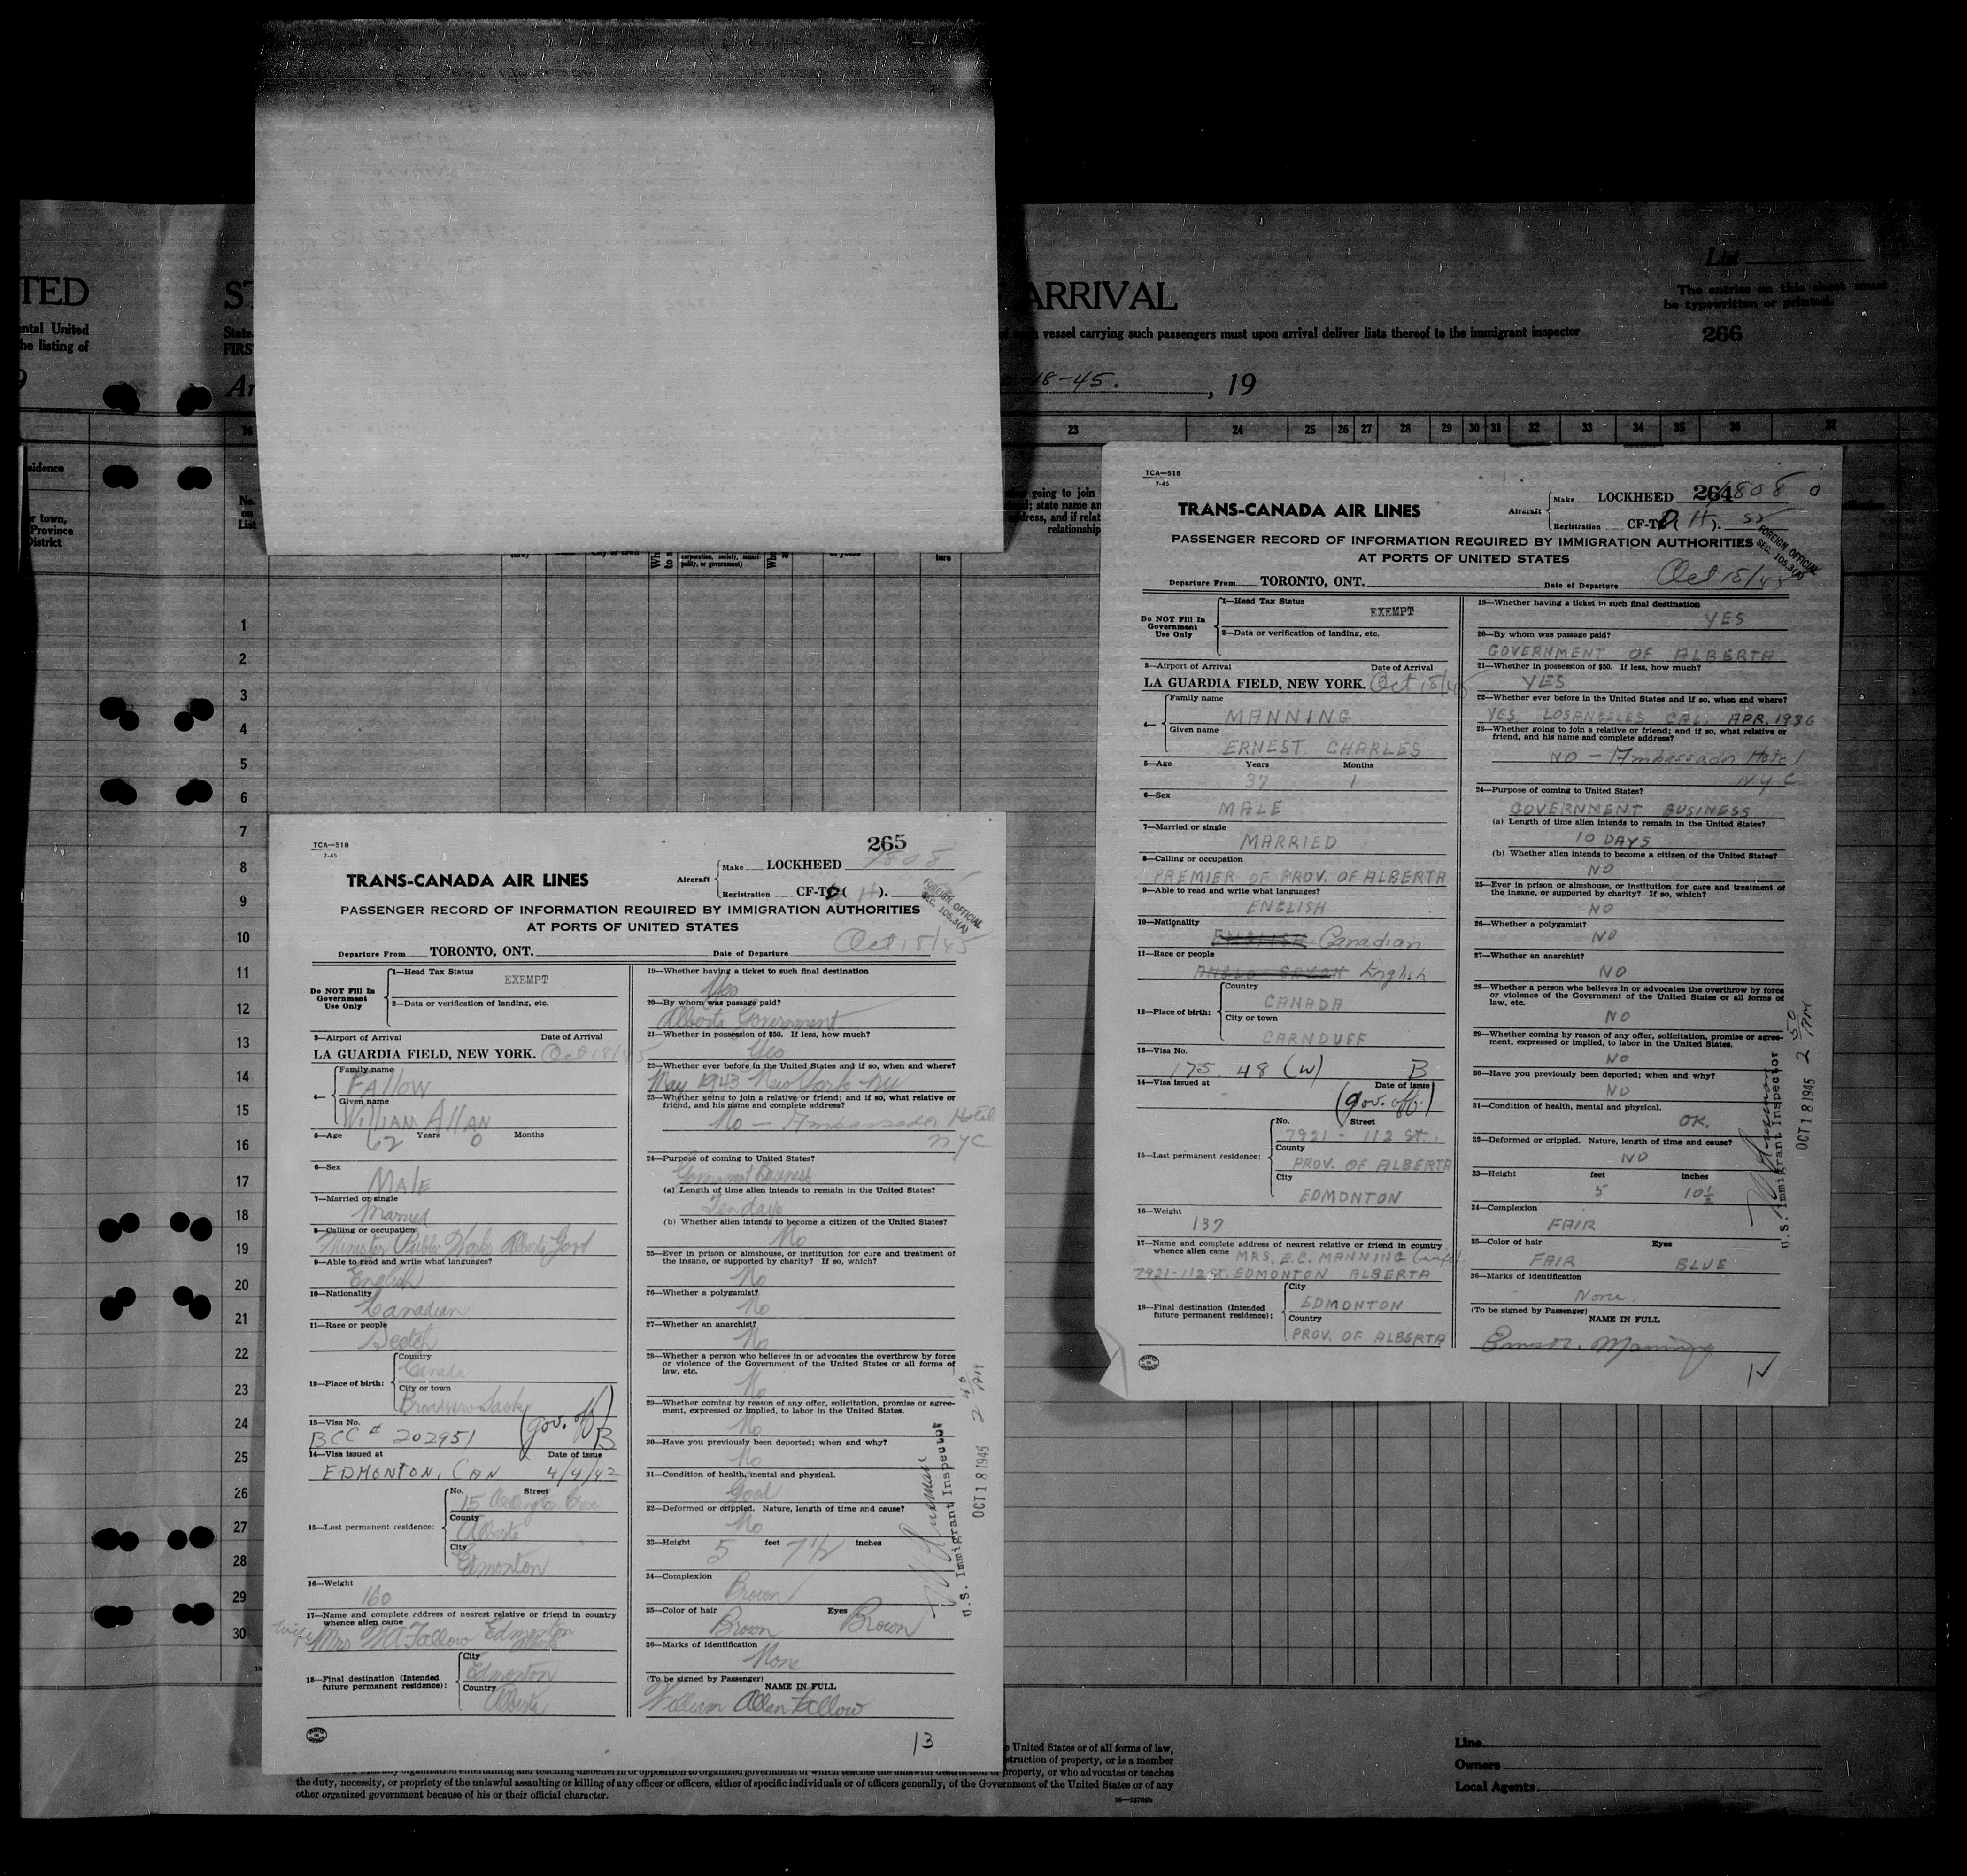 TED
ental United
he listing of
ST
State
FIRS
ARRIVAL
vessel carrying such passengers must upon arrival deliver lists thereof to the immigrant inspector
18-45. , 19
List
The entries on this sheet must
be typewritten or printed.
266
16 23 24 25 26 27 28 29 30 31 32 33 34 35 36 37
sidence
or town,
Province
District
No.
on
List
going to join
state name an
address, and if relat
relationship
1
2
3
4
5
6
7
8
9
10
11
12
13
14
15
16
17
18
19
20
21
22
23
24
25
26
27
28
29
30
TCA—518
7-45
265
TRANS-CANADA AIR LINES
Aircraft Make LOCKHEED 1808
Registration CF-TC( H).
FOREIGN OFFICIAL
SEC. 105.3(A)
PASSENGER RECORD OF INFORMATION REQUIRED BY IMMIGRATION AUTHORITIES
AT PORTS OF UNITED STATES
Departure From TORONTO, ONT. Date of Departure Oct 18/45
Do NOT Fill In
Government
Use Only
1—Head Tax Status EXEMPT
2—Data or verification of landing, etc.
3—Airport of Arrival Date of Arrival
LA GUARDIA FIELD, NEW YORK. Oct 18/45
4— Family name
Fallow
Given name
William Allan
5—Age 62 Years 0 Months
6—Sex
Male
7—Married or single
Married
8—Calling or occupation
Minister Public Works Alberta Govt
9—Able to read and write what languages?
English
10—Nationality
Canadian
11—Race or people
Scotch
12—Place of birth: Country
Canada
City or town
13—Visa No. (gov. off)
BCC # 202951 B
14—Visa issued at Date of issue
EDMONTON, CAN 4/4/42
15—Last permanent residence: No. Street
15
County
Alberta
City
Edmonton
16—Weight
160
17—Name and complete address of nearest relative or friend in country
whence alien came
wife Mrs WA Fallow Edmonton
18—Final destination (Intended
future permanent residence): City
Edmonton
Country
Alberta
19—Whether having a ticket to such final destination
Yes
20—By whom was passage paid?
Alberta Government
21—Whether in possession of $50. If less, how much?
Yes
22—Whether ever before in the United States and if so, when and where?
May 1943 New York NY
23—Whether going to join a relative or friend; and if so, what relative or
friend, and his name and complete address?
No — Ambassador Hotel
NYC
24—Purpose of coming to United States?
Government Business
(a) Length of time alien intends to remain in the United States?
Ten days
(b) Whether alien intends to become a citizen of the United States?
No
25—Ever in prison or almshouse, or institution for care and treatment of
the insane, or supported by charity? If so, which?
No
26—Whether a polygamist?
No
27—Whether an anarchist?
No
28—Whether a person who believes in or advocates the overthrow by force
or violence of the Government of the United States or all forms of
law, etc.
No
29—Whether coming by reason of any offer, solicitation, promise or agree-
ment, expressed or implied, to labor in the United States.
No
30—Have you previously been deported; when and why?
No
31—Condition of health, mental and physical.
Good
32—Deformed or crippled. Nature, length of time and cause?
No
33—Height 5 feet 7½ inches
34—Complexion
Brown
35—Color of hair Eyes
Brown Brown
36—Marks of identification
None
(To be signed by Passenger) NAME IN FULL
William Allan Fallow
U.S. Immigrant Inspector
OCT 18 1945 2 40 PM
13
TCA—518
7-45
264
TRANS-CANADA AIR LINES
Aircraft Make LOCKHEED 1808
Registration CF-T H).
FOREIGN OFFICIAL
SEC. 105.3(A)
PASSENGER RECORD OF INFORMATION REQUIRED BY IMMIGRATION AUTHORITIES
AT PORTS OF UNITED STATES
Departure From TORONTO, ONT. Date of Departure Oct 18/45
Do NOT Fill In
Government
Use Only
1—Head Tax Status EXEMPT
2—Data or verification of landing, etc.
3—Airport of Arrival Date of Arrival
LA GUARDIA FIELD, NEW YORK. Oct 18/45
4— Family name
MANNING
Given name
ERNEST CHARLES
5—Age Years Months
37 1
6—Sex
MALE
7—Married or single
MARRIED
8—Calling or occupation
PREMIER OF PROV. OF ALBERTA
9—Able to read and write what languages?
ENGLISH
10—Nationality
ENGLISH Canadian
11—Race or people
ANGLO-SAXON English
12—Place of birth: Country
CANADA
City or town
CARNDUFF
13—Visa No.
175. 48 (W) B
14—Visa issued at Date of issue
(gov. off.)
15—Last permanent residence: No. Street
7921 - 112 ST.
County
PROV. OF ALBERTA
City
EDMONTON
16—Weight
137
17—Name and complete address of nearest relative or friend in country
whence alien came MRS. E.C. MANNING (wife).
7921-112 ST. EDMONTON ALBERTA
18—Final destination (Intended
future permanent residence): City
EDMONTON
Country
PROV. OF ALBERTA
19—Whether having a ticket to such final destination
YES
20—By whom was passage paid?
GOVERNMENT OF ALBERTA
21—Whether in possession of $50. If less, how much?
YES
22—Whether ever before in the United States and if so, when and where?
YES LOSANGELES CAL. APR. 1936
23—Whether going to join a relative or friend; and if so, what relative or
friend, and his name and complete address?
NO — Ambassador Hotel
N.Y.C.
24—Purpose of coming to United States?
GOVERNMENT BUSINESS
(a) Length of time alien intends to remain in the United States?
10 DAYS
(b) Whether alien intends to become a citizen of the United States?
NO
25—Ever in prison or almshouse, or institution for care and treatment of
the insane, or supported by charity? If so, which?
NO
26—Whether a polygamist?
NO
27—Whether an anarchist?
NO
28—Whether a person who believes in or advocates the overthrow by force
or violence of the Government of the United States or all forms of
law, etc.
NO
29—Whether coming by reason of any offer, solicitation, promise or agree-
ment, expressed or implied, to labor in the United States.
NO
30—Have you previously been deported; when and why?
NO
31—Condition of health, mental and physical.
OK.
32—Deformed or crippled. Nature, length of time and cause?
NO
33—Height feet inches
5 10½
34—Complexion
FAIR
35—Color of hair Eyes
FAIR BLUE
36—Marks of identification
None.
(To be signed by Passenger) NAME IN FULL
Ernest C. Manning
U.S. Immigrant Inspector
OCT 18 1945 2 50 PM
United States or of all forms of law,
struction of property, or is a member
property, or who advocates or teaches
the duty, necessity, or propriety of the unlawful assaulting or killing of any officer or officers, either of specific individuals or of officers generally, of the Government of the United States or of any
other organized government because of his or their official character.
16—18709b
Line
Owners
Local Agents